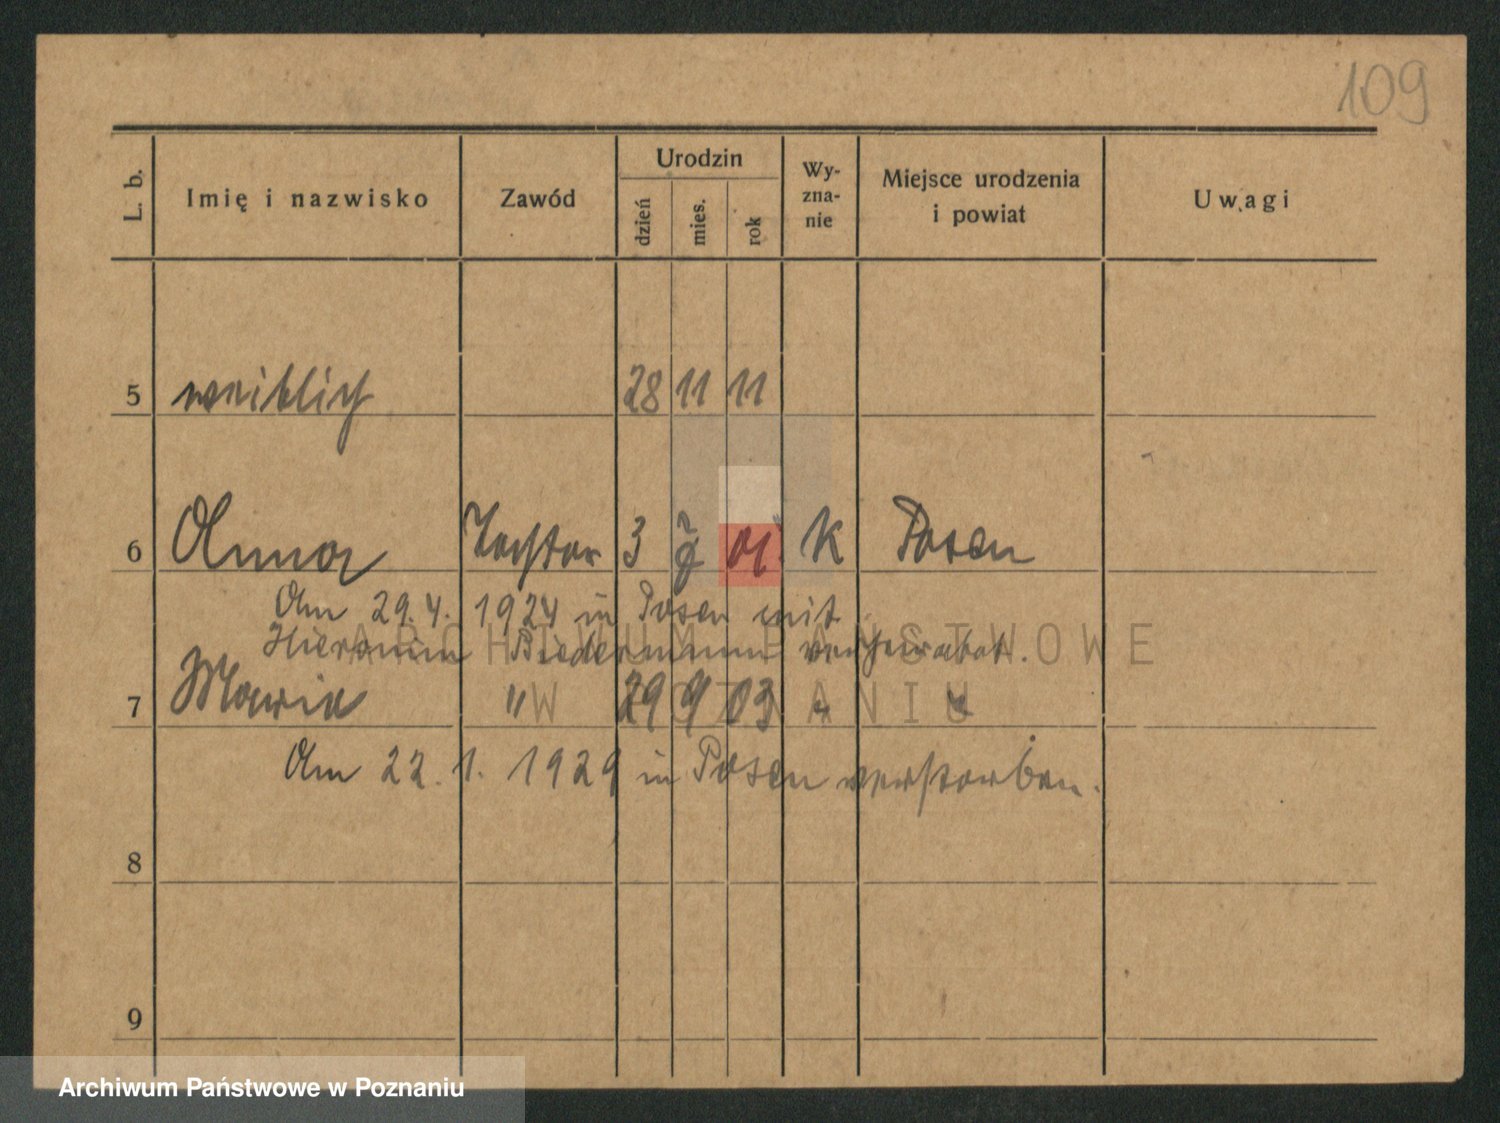 109
L. b. Imię i nazwisko Zawód Urodzin dzień mies. rok Wy-zna-nie Miejsce urodzenia i powiat Uwagi
5 weiblich 28 11 11
6 Anna Tochter 3 01 K Posen
Am 29.4. 1924 in Posen mit
Hieronim Biedermann verheiratet.
7 Maria " 29 9 03 " "
Am 22.1.1929 in Posen verstorben.
8
9
ARCHIWUM PAŃSTWOWE
W POZNANIU
Archiwum Państwowe w Poznaniu